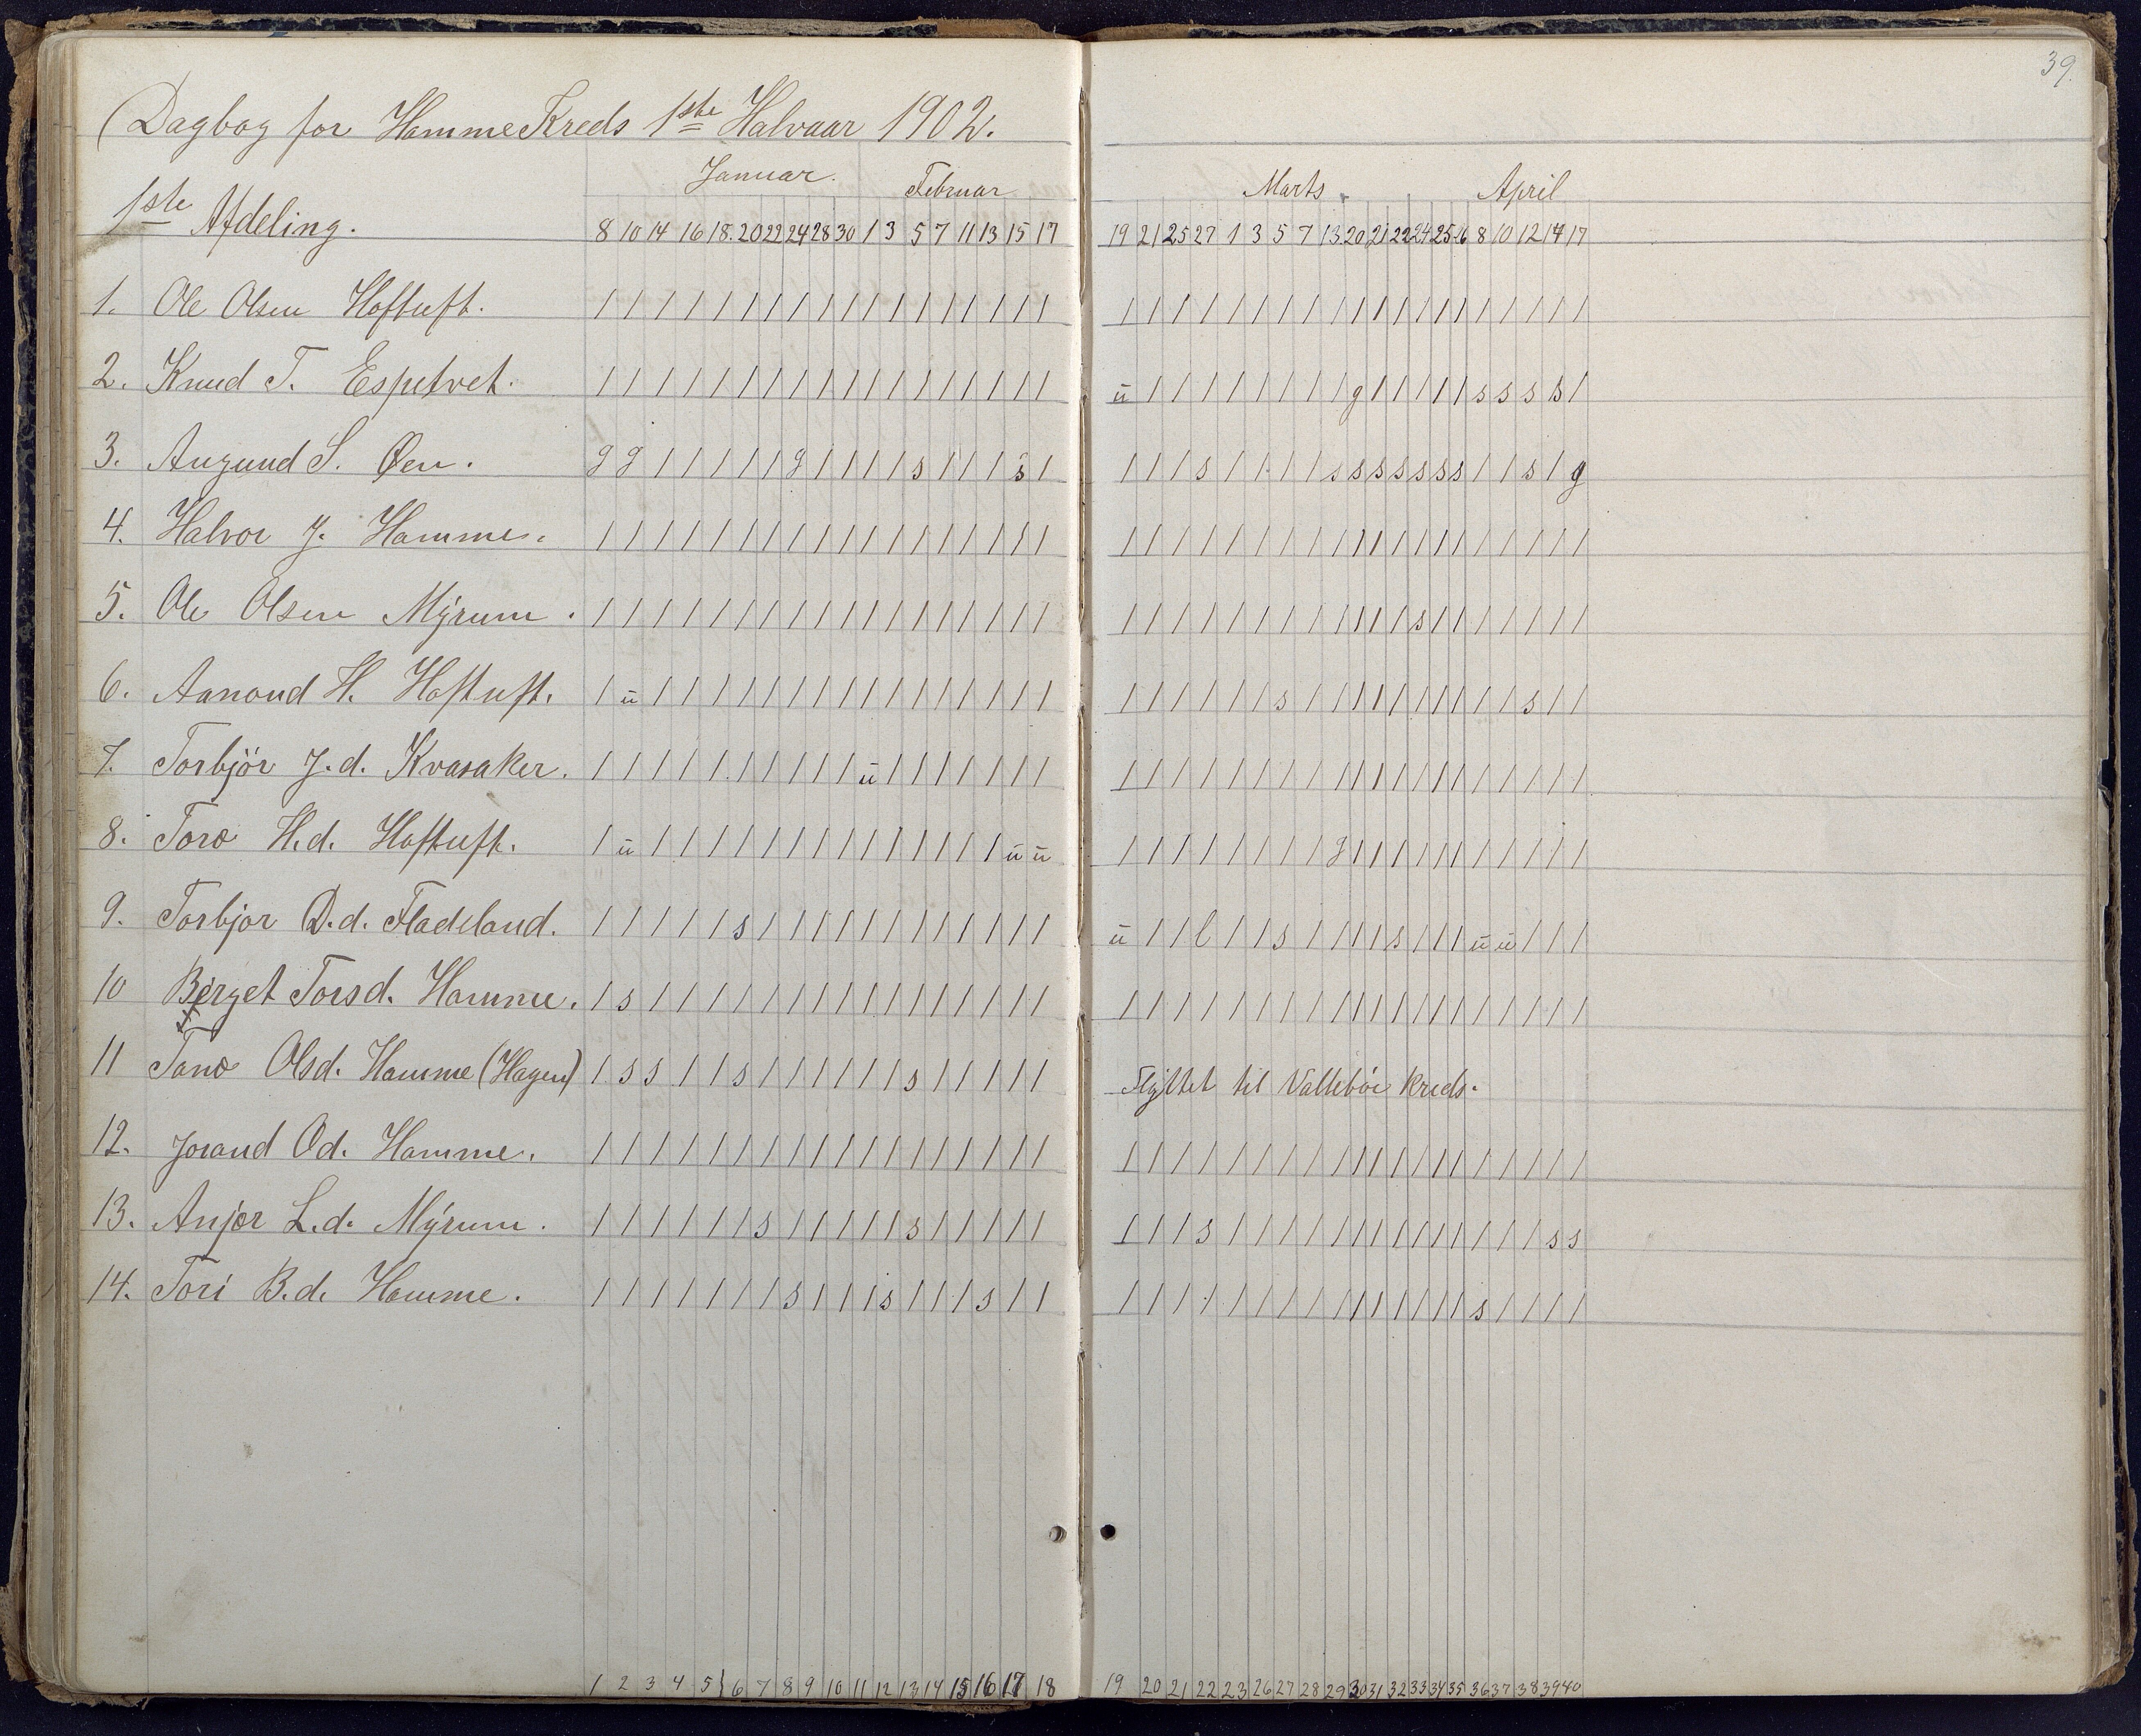 39.
Dagbog for Hamme Kreds 1ste Halvaar 1902.
Januar. Februar Marts April
1ste Afdeling. 8 10 14 16 18. 20 22 24 28 30 1 3 5 7 11 13 15 17 19 21 25 27 1 3 5 7 13 20 21 22 24 25 26 8 10 12 14 17
1. Ole Olsen Hoftuft. / / / / / / / / / / / / / / / / / / / / / / / / / / / / / / / / / / / / / /
2. Knud T. Espetvet. / / / / / / / / / / / / / / / / / / ū / / / / / / / / g / / / / / s s s s /
3. Augund S. Øen. g g / / / / / g / / / / s / / / s / / / / s / / / / s s s s s s s / / s / g
4. Halvor J. Hamme. / / / / / / / / / / / / / / / / / / / / / / / / / / / / / / / / / / / / / /
5. Ole Olsen Mýrum. / / / / / / / / / / / / / / / / / / / / / / / / / / / / / / s / / / / / / /
6. Aanond H. Hoftuft. / ū / / / / / / / / / / / / / / / / / / / / / / s / / / / / / / / / / s / /
7. Torbjör J.d. Kvasaker. / / / / / / / / / / ū / / / / / / / / / / / / / / / / / / / / / / / / / / /
8. Toro H.d. Hoftuft. / ū / / / / / / / / / / / / / / ū ū / / / / / / / / g / / / / / / / / / / /
9. Torbjor D.d. Fladeland. / / / / / s / / / / / / / / / / / / ū / / l / / s / / / / s / / / ū ū / / /
10 Berget Torsd. Hamme. / s / / / / / / / / / / / / / / / / / / / / / / / / / / / / / / / / / / / /
11 Tone Olsd. Hamme (Hagen) / s s / / s / / / / / / s / / / / / Flýttet til Vallebøe kreds.
12. Jorand Od. Hamme. / / / / / / / / / / / / / / / / / / / / / / / / / / / / / / / / / / / / / /
13. Anjer L.d. Mýrum. / / / / / / s / / / / / s / / / / / / / / s / / / / / / / / / / / / / / s s
14. Tori B.d. Hamme. / / / / / / / s / / / s / / / s / / / / / / / / / / / / / / / / / s / / / /
1 2 3 4 5 6 7 8 9 10 11 12 13 14 15 16 17 18 19 20 21 22 23 26 27 28 29 30 31 32 33 34 35 36 37 38 39 40